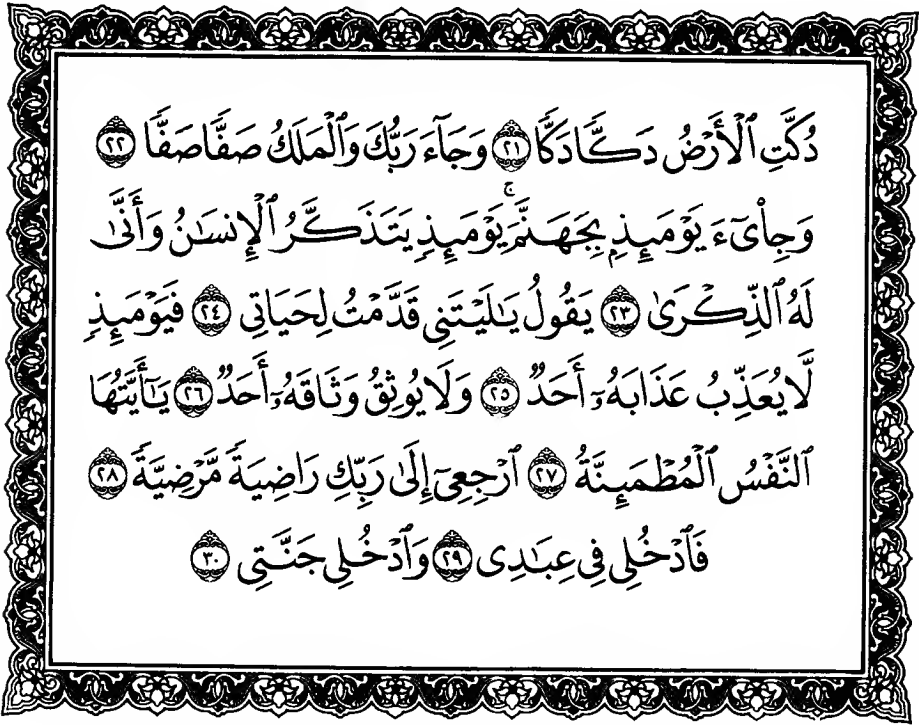 دُكَّتِ ٱلْأَرْضُ دَكًّا دَكًّا ٢١ وَجَآءَ رَبُّكَ وَٱلْمَلَكُ صَفًّا صَفًّا ٢٢
وَجِا۟ىٓءَ يَوْمَئِذِۭ بِجَهَنَّمَ ۚ يَوْمَئِذٍ يَتَذَكَّرُ ٱلْإِنسَٰنُ وَأَنَّىٰ
لَهُ ٱلذِّكْرَىٰ ٢٣ يَقُولُ يَٰلَيْتَنِى قَدَّمْتُ لِحَيَاتِى ٢٤ فَيَوْمَئِذٍ
لَّا يُعَذِّبُ عَذَابَهُۥٓ أَحَدٌ ٢٥ وَلَا يُوثِقُ وَثَاقَهُۥٓ أَحَدٌ ٢٦ يَٰٓأَيَّتُهَا
ٱلنَّفْسُ ٱلْمُطْمَئِنَّةُ ٢٧ ٱرْجِعِىٓ إِلَىٰ رَبِّكِ رَاضِيَةً مَّرْضِيَّةً ٢٨
فَٱدْخُلِى فِى عِبَٰدِى ٢٩ وَٱدْخُلِى جَنَّتِى ٣٠